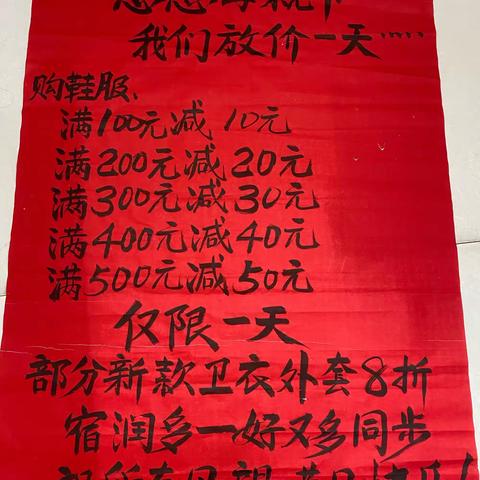 感恩母亲节
我们放价一天……
购鞋服、
满100元减10元
满200元减20元
满300元减30元
满400元减40元
满500元减50元
仅限一天
部分新款卫衣外套8折
宿润多一好又多同步
祝所有母亲 节日快乐!